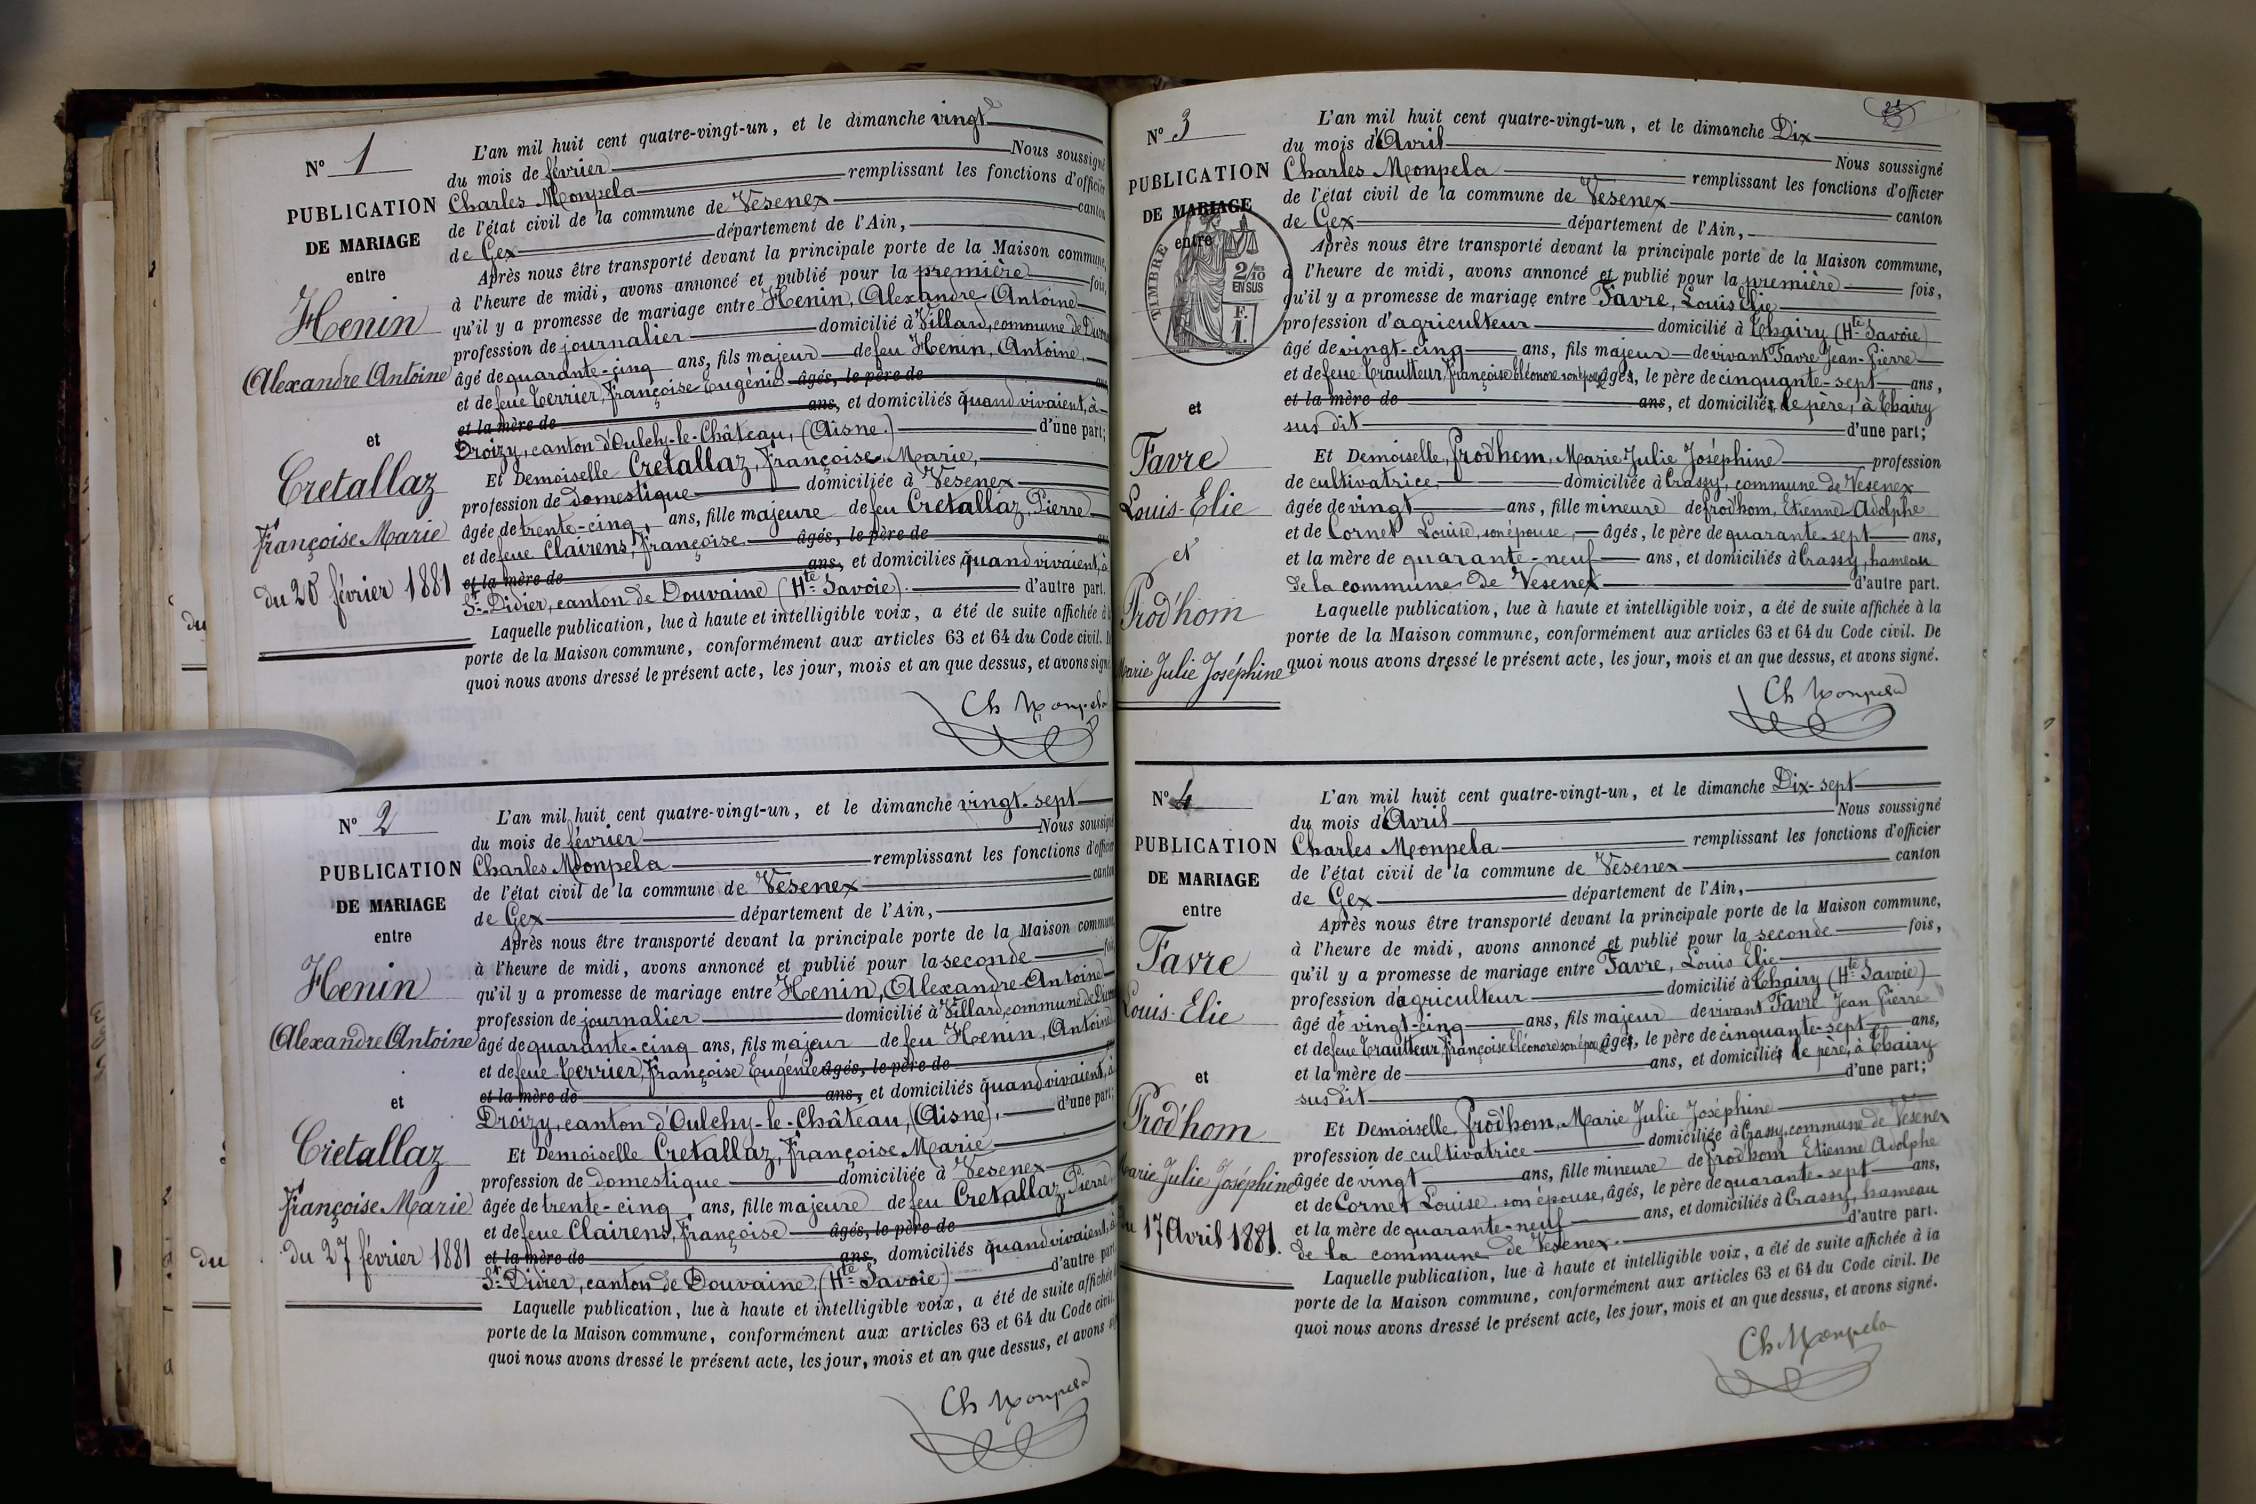 N° 1
PUBLICATION
DE MARIAGE
entre
Henin
Alexandre Antoine
et
Cretallaz
Françoise Marie
du 20 février 1881
L'an mil huit cent quatre-vingt-un, et le dimanche vingt
du mois de février Nous soussigné
Charles Monpela remplissant les fonctions d'officier
de l'état civil de la commune de Vesenex canton
de Gex département de l'Ain,
Après nous être transporté devant la principale porte de la Maison commune,
à l'heure de midi, avons annoncé et publié pour la première fois,
qu'il y a promesse de mariage entre Henin, Alexandre Antoine
profession de journalier domicilié à Villard, commune de
âgé de quarante-cinq ans, fils majeur de feu Henin, Antoine,
et de feue Terrier, Françoise Eugénie âgés, le père de ans,
et la mère de ans, et domiciliés quand vivaient, à
Droizy, canton d'Oulchy-le-Château, (Aisne.) d'une part;
Et Demoiselle Cretallaz, Françoise Marie,
profession de domestique domiciliée à Vesenex
âgée de trente-cinq ans, fille majeure de feu Cretallaz, Pierre
et de feue Clairens, Françoise âgés, le père de ans
et la mère de ans, et domiciliés quand vivaient, à
St. Didier, canton de Douvaine (Hte Savoie). d'autre part.
Laquelle publication, lue à haute et intelligible voix, a été de suite affichée à la
porte de la Maison commune, conformément aux articles 63 et 64 du Code civil. De
quoi nous avons dressé le présent acte, les jour, mois et an que dessus, et avons signé
Ch Monpela
N° 2
PUBLICATION
DE MARIAGE
entre
Henin
Alexandre Antoine
et
Cretallaz
Françoise Marie
du 27 février 1881
L'an mil huit cent quatre-vingt-un, et le dimanche vingt-sept
du mois de février Nous soussigné
Charles Monpela remplissant les fonctions d'officier
de l'état civil de la commune de Vesenex canton
de Gex département de l'Ain,
Après nous être transporté devant la principale porte de la Maison commune
à l'heure de midi, avons annoncé et publié pour la seconde fois
qu'il y a promesse de mariage entre Henin, Alexandre Antoine
profession de journalier domicilié à Villard, commune de
âgé de quarante-cinq ans, fils majeur de feu Henin, Antoine
et de feue Terrier, Françoise Eugénie âgés, le père de
et la mère de ans, et domiciliés quand vivaient, à
Droizy, canton d'Oulchy-le-Château, (Aisne), d'une part;
Et Demoiselle Cretallaz, Françoise Marie
profession de domestique domiciliée à Vesenex
âgée de trente-cinq ans, fille majeure de feu Cretallaz, Pierre
et de feue Clairens, Françoise âgés, le père de
et la mère de ans, domiciliés quand vivaient, à
St. Didier, canton de Douvaine, (Hte Savoie) d'autre part
Laquelle publication, lue à haute et intelligible voix, a été de suite affichée
porte de la Maison commune, conformément aux articles 63 et 64 du Code civil.
quoi nous avons dressé le présent acte, les jour, mois et an que dessus, et avons
Ch Monpela
N° 3
PUBLICATION
DE MARIAGE
entre
TIMBRE
2/10
EN SUS
F.
1.
et
Favre
Louis-Elie
et
Prod'hom
Marie Julie Joséphine
L'an mil huit cent quatre-vingt-un, et le dimanche Dix
du mois d'Avril Nous soussigné
Charles Monpela remplissant les fonctions d'officier
de l'état civil de la commune de Vesenex canton
de Gex département de l'Ain,
Après nous être transporté devant la principale porte de la Maison commune,
à l'heure de midi, avons annoncé et publié pour la première fois,
qu'il y a promesse de mariage entre Favre, Louis Elie
profession d'agriculteur domicilié à Thairy (Hte Savoie)
âgé de vingt-cinq ans, fils majeur de vivant Favre Jean-Pierre
et de feue Trautteur, Françoise Eléonore son épouse âgés, le père de cinquante-sept ans,
et la mère de ans, et domiciliés, le père, à Thairy
sus dit d'une part;
Et Demoiselle, Prod'hom, Marie Julie Joséphine profession
de cultivatrice, domiciliée à Crassy, commune de Vesenex
âgée de vingt ans, fille mineure de Prod'hom, Etienne-Adolphe
et de Cornet Louise, son épouse, âgés, le père de quarante-sept ans,
et la mère de quarante-neuf ans, et domiciliés à Crassy, hameau
de la commune de Vesenex d'autre part.
Laquelle publication, lue à haute et intelligible voix, a été de suite affichée à la
porte de la Maison commune, conformément aux articles 63 et 64 du Code civil. De
quoi nous avons dressé le présent acte, les jour, mois et an que dessus, et avons signé.
Ch Monpela
N° 4
PUBLICATION
DE MARIAGE
entre
Favre
Louis-Elie
et
Prod'hom
Marie Julie Joséphine
du 17 Avril 1881.
L'an mil huit cent quatre-vingt-un, et le dimanche Dix-sept
du mois d'Avril Nous soussigné
Charles Monpela remplissant les fonctions d'officier
de l'état civil de la commune de Vesenex canton
de Gex département de l'Ain,
Après nous être transporté devant la principale porte de la Maison commune,
à l'heure de midi, avons annoncé et publié pour la seconde fois,
qu'il y a promesse de mariage entre Favre, Louis Elie
profession d'agriculteur domicilié à Thairy (Hte Savoie)
âgé de vingt-cinq ans, fils majeur de vivant Favre Jean Pierre
et de feue Trautteur, Françoise Eléonore son épouse âgés, le père de cinquante-sept ans,
et la mère de ans, et domiciliés le père, à Thairy
sus dit d'une part;
Et Demoiselle Prod'hom, Marie Julie Joséphine
profession de cultivatrice domiciliée à Crassy, commune de Vesenex
âgée de vingt ans, fille mineure de Prod'hom Etienne Adolphe
et de Cornet Louise, son épouse, âgés, le père de quarante-sept ans,
et la mère de quarante-neuf ans, et domiciliés à Crassy, hameau
de la commune de Vesenex. d'autre part.
Laquelle publication, lue à haute et intelligible voix, a été de suite affichée à la
porte de la Maison commune, conformément aux articles 63 et 64 du Code civil. De
quoi nous avons dressé le présent acte, les jour, mois et an que dessus, et avons signé.
Ch Monpela